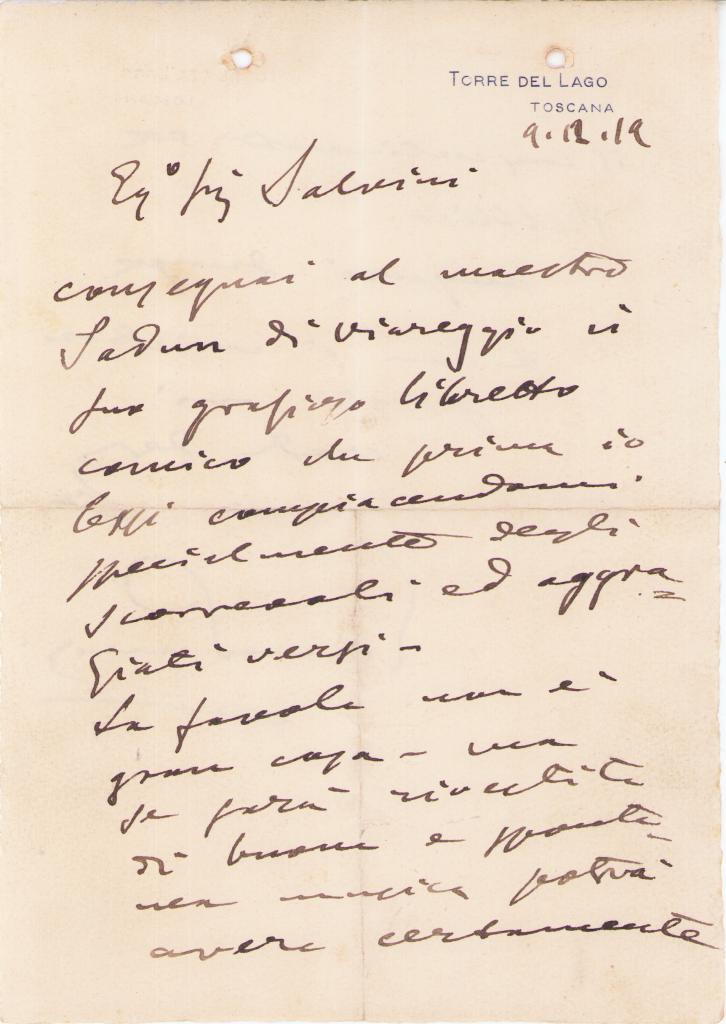 TORRE DEL LAGO
TOSCANA
9.12.19
Eg° Sig Salvini
consegnai al maestro
Sadun di Viareggio il
suo grazioso libretto
comico che prima io
lessi compiacendomi
specialmente degli
scorrevoli ed aggra=
ziati versi -
La favola non è
gran cosa - ma
se sarà rivestita
di buona e sponta-
nea musica potrà
avere certamente